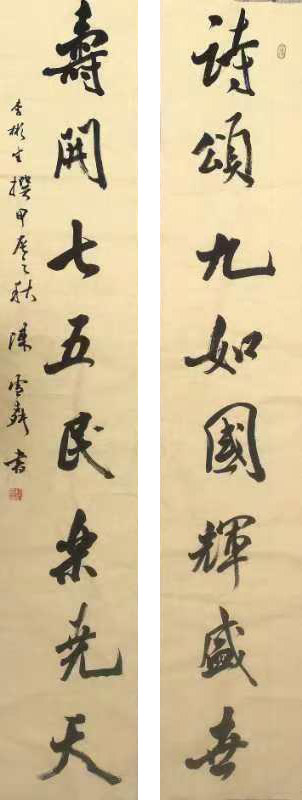 詩頌九如國輝盛世
壽開七五民樂堯天
李彬生撰甲辰之秋陳雪群書